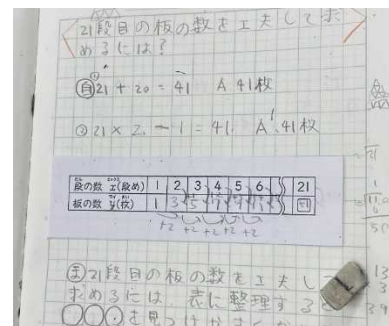 21段目の板の数を工夫して求
めるには?
自 21 + 20 = 41 A 41枚
② 21 × 2 - 1 = 41. A. 41枚
段の数 x(段め) 1 2 3 4 5 6 21
板の数 y(枚) 1 3 5 7 9 11 41
+2 +2 +2 +2 +2
ま 21段目の板の数を工夫して
求めるには、表に整理すると
◯◯◯を見つけ